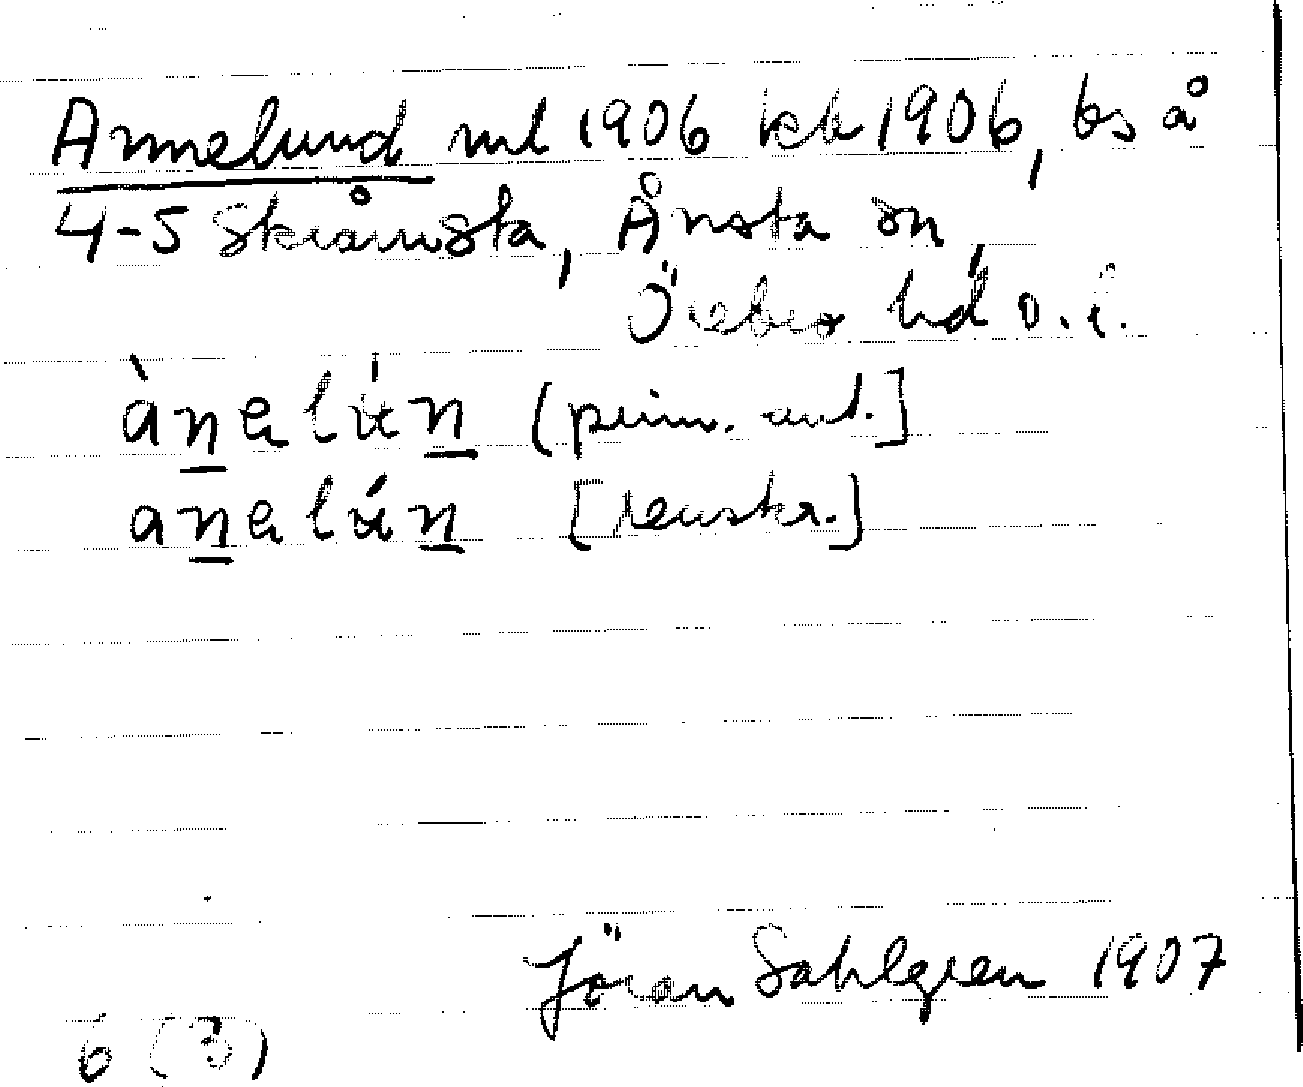 Annelund ml 1906 kb 1906, bs å
4-5 Skråmsta, Ånsta sn,
Örebro hd Ö.l.
ànəlún (prim. uppt.]
anəlún [renskr.]
Jöran Sahlgren 1907
6 (3)